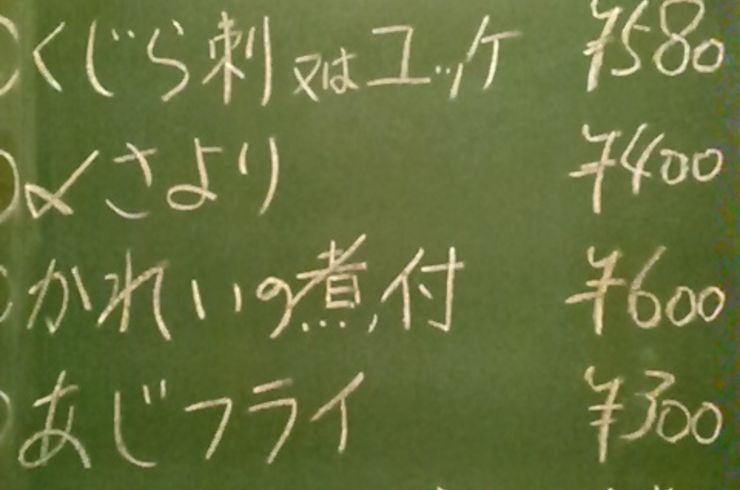 ○くじら刺又はユッケ ¥580
○〆さより ¥400
○かれいの煮付 ¥600
○あじフライ ¥300